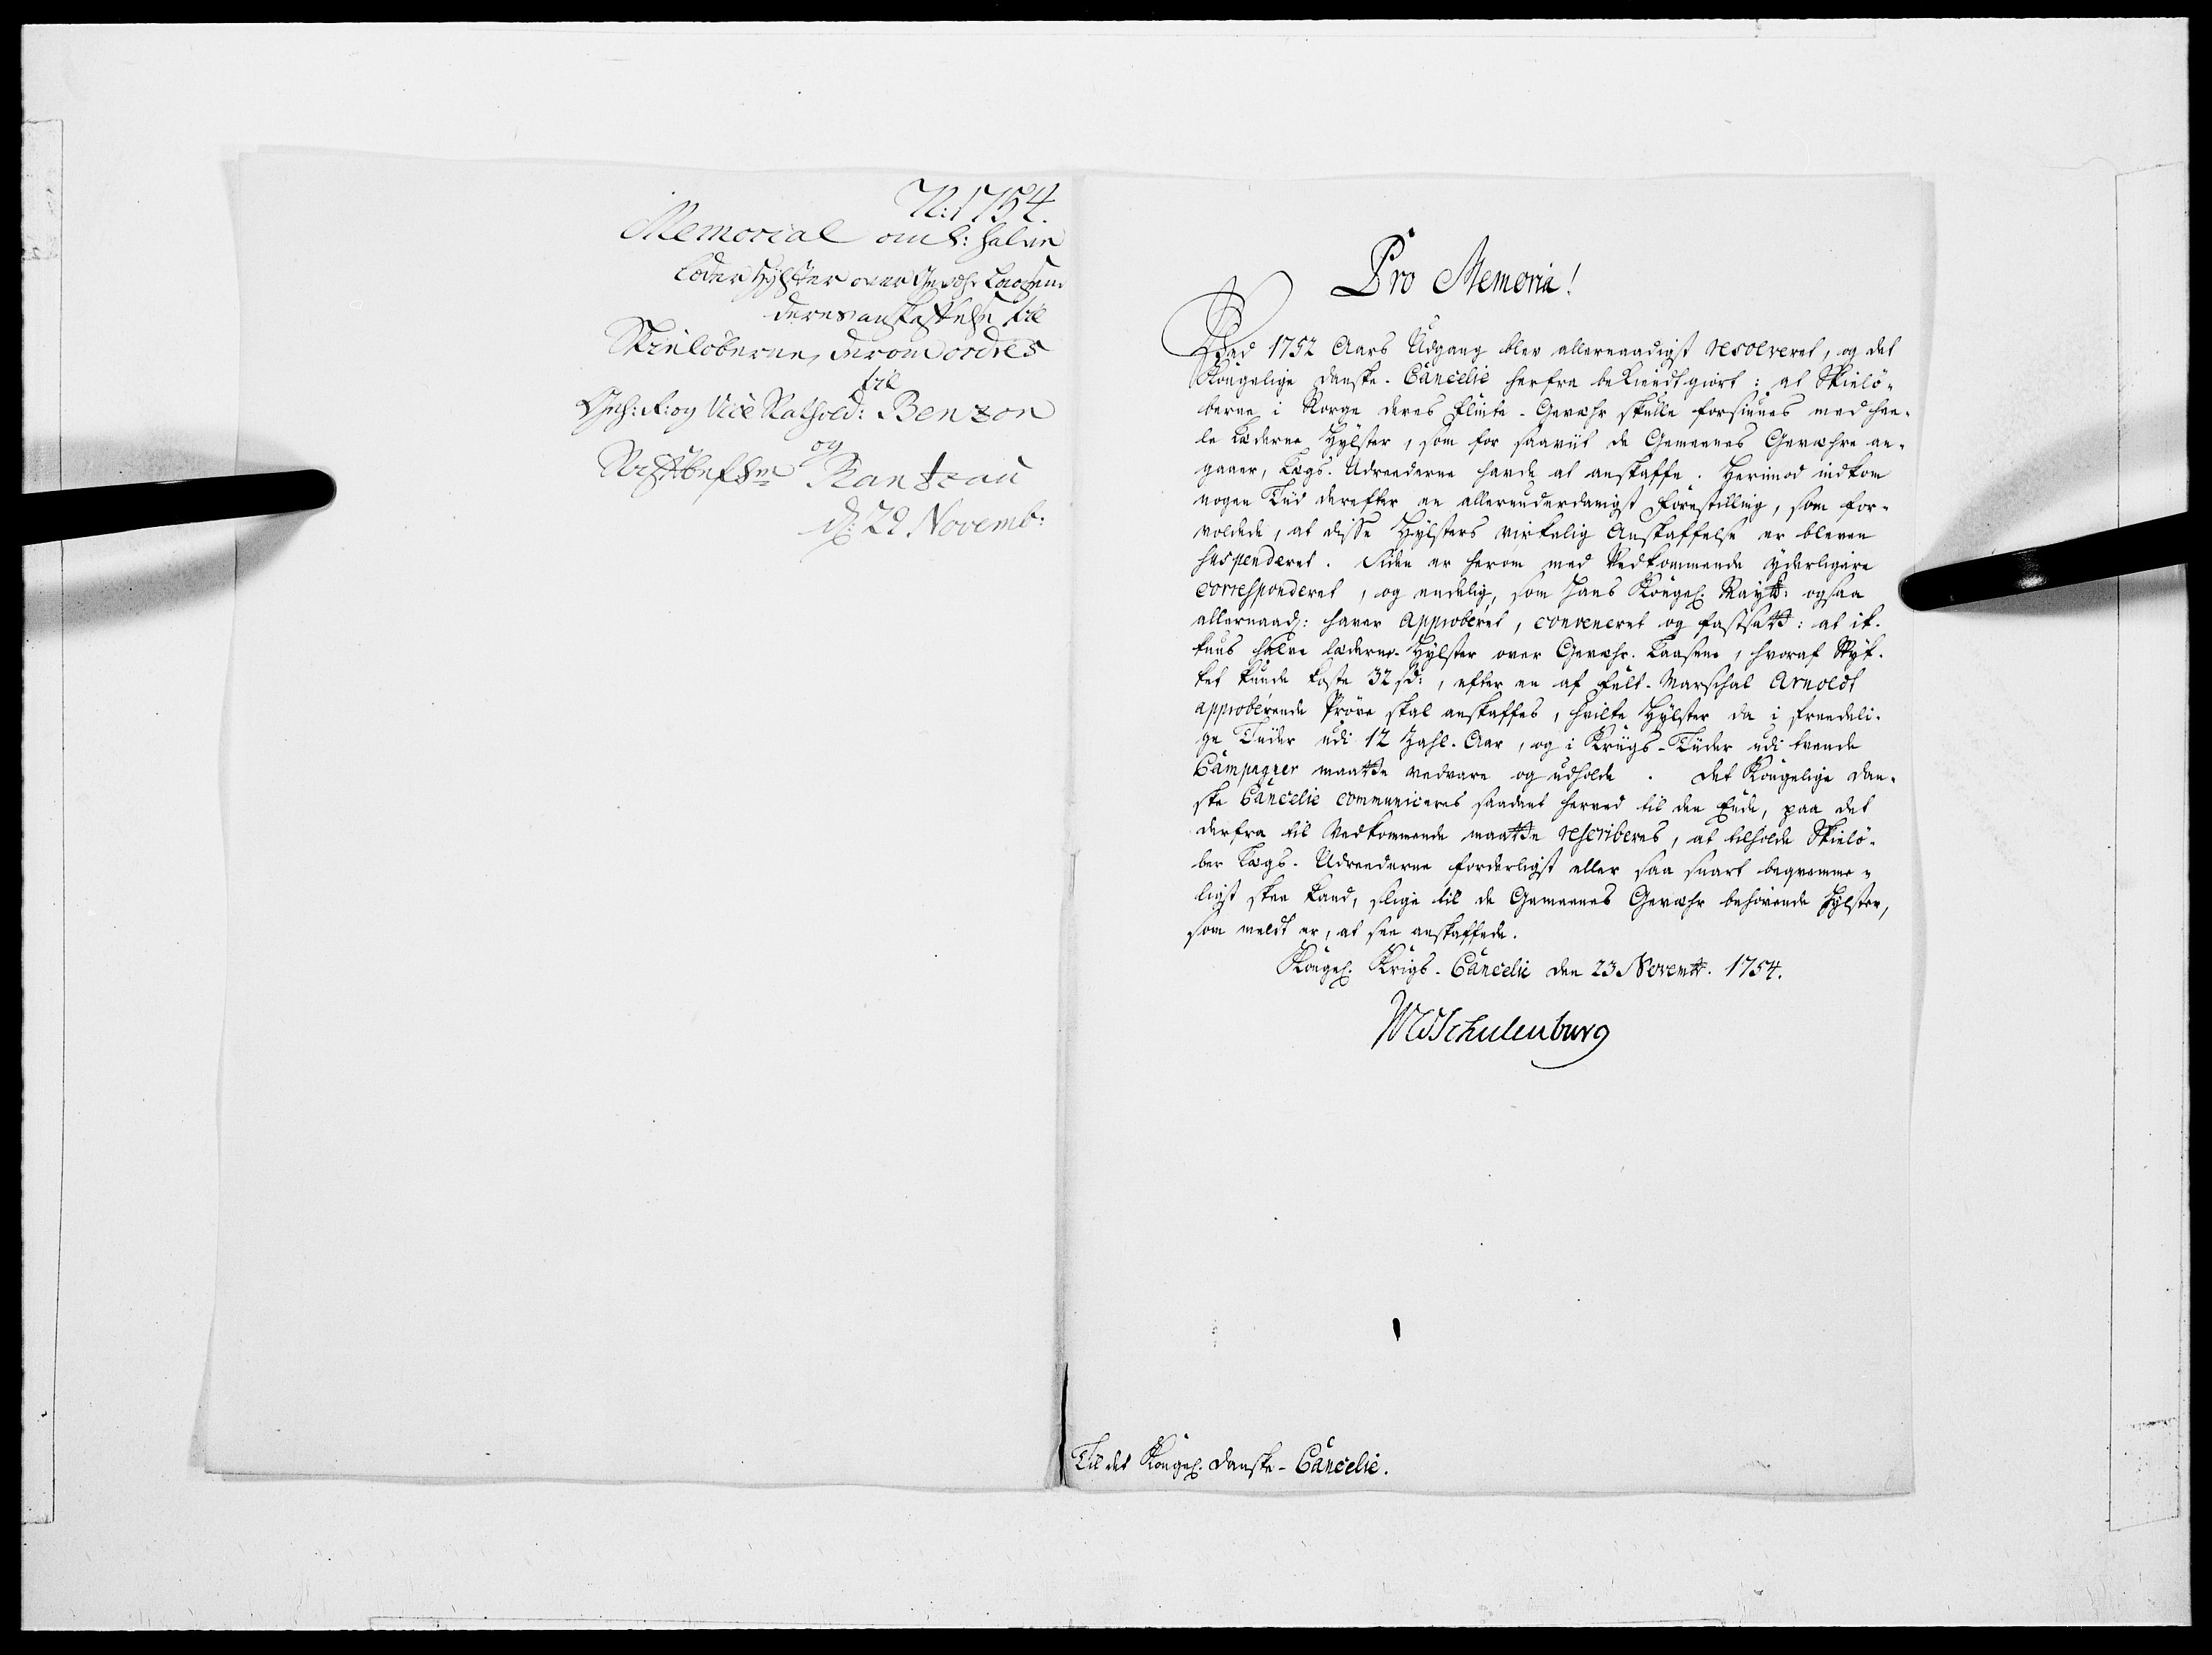 N: 1754.
Memorial anl: halve
Læder Hÿlster over Gewehr Laasene
deres anskaffelse til
Skieløberne, derom ordres
til
Geh: R: og Vice Stathold: Benzon
og
Stiftbefhm Rantzau
d: 29 Novemb:
Pro Memoria!
Ved 1752 Aars Udgang blev allernaadigst resolveret, og det
Kongelige Danske-Cancelie herfra bekiendtgiort: at Skielø-
berne i Norge deres Flinte-Gewæhr skulle forsiunes med hee-
le Læderne Hÿlster, som for saaviit de Gemeenes Gewæhre an-
gaaer, Lægs-Udreederne havde at anskaffe. Herimod indkom
nogen Tiid derefter en allerunderdanigst Forestilling, som for-
voldede, at disse Hÿlsters virkelig Anskaffelse er bleven
suspenderet. Siden er herom med Vedkommende ÿderligere
corresponderet, og endelig, som Hans Kongel: Maÿtt: ogsaa
allernaad: haver approberet, conveneret og fastsatt: at ik-
kuns halve læderne-Hÿlster over Gewæhr-Laasene, hvoraf Stÿk-
ket kunde koste 32 sd:, efter en af Felt-Marschal Arnoldt
approberende Prøve skal anskaffes, hvilke Hÿlster da i freedeli-
ge Tiider udi 12 Zahl-Aar, og i Kriigs-Tiider udi tvende
Campagner maatte vedvare og udholde. Det Kongelige Dan-
ske Cancelie communiceres saadant herved til den Ende, paa det
derfra til Vedkommende maatte rescriberes, at tilholde Skielø-
ber Lægs-Udreederne forderligst eller saa snart beqvemme-
ligst skee kand, slige til de Gemeenes Gewæhr behøvende Hÿlster,
som meldt er, at see anskaffede.
Kongel: Krigs-Cancelie den 23 Novembr. 1754.
WvSchulenburg
Til det Kongel: Danske-Cancelie.